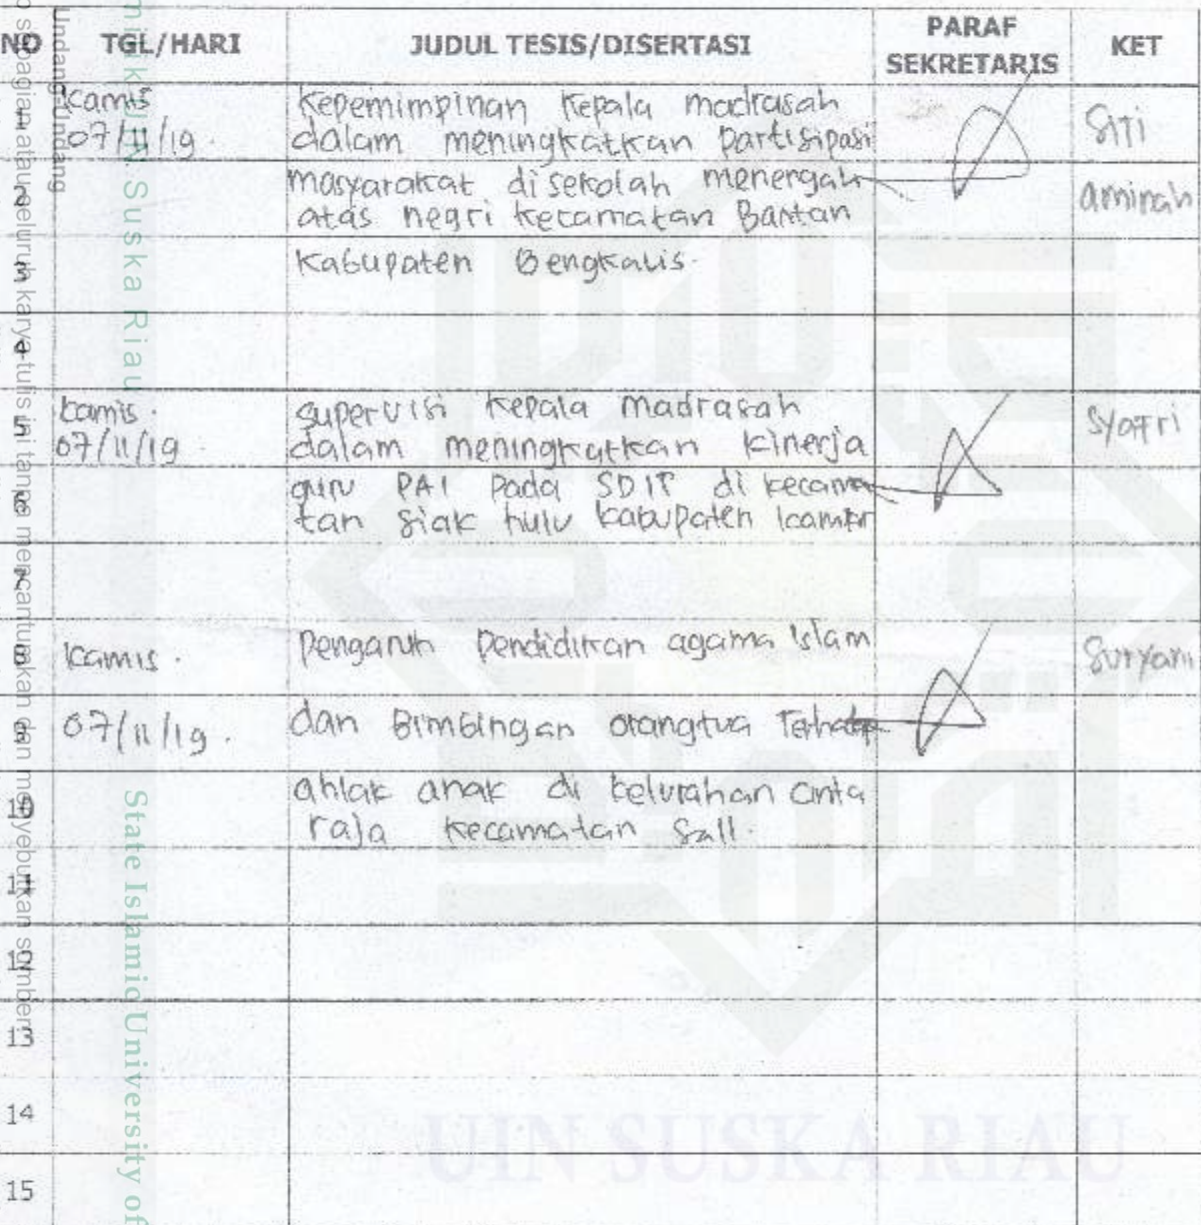 NO TGL/HARI JUDUL TESIS/DISERTASI PARAF SEKRETARIS KET
1 Kamis 07/11/19. Kepemimpinan Kepala madrasah
dalam meningkatkan Partisipasi
Siti
2 masyarakat disekolah menengah
atas negri kecamatan Bantan
aminah
3 Kabupaten Bengkalis.
4
5 kamis. 07/11/19 supervisi Kepala Madrasah
dalam meningkatkan Kinerja
Syafri
6 guru PAI Pada SDIT di kecama
tan Siak hulu kabupaten kampar
7
8 kamis. Pengaruh Pendidikan agama Islam
Suryani
9 07/11/19. dan Bimbingan orangtua Terhadap
10 ahlak anak di kelurahan cinta
raja kecamatan Sail.
11
12
13
14
15
Undang-Undang
sebagian atau seluruh karya tulis ini tanpa mencantumkan dan menyebutkan sumber:
milik UIN Suska Riau
State Islamic University of
UIN SUSKA RIAU